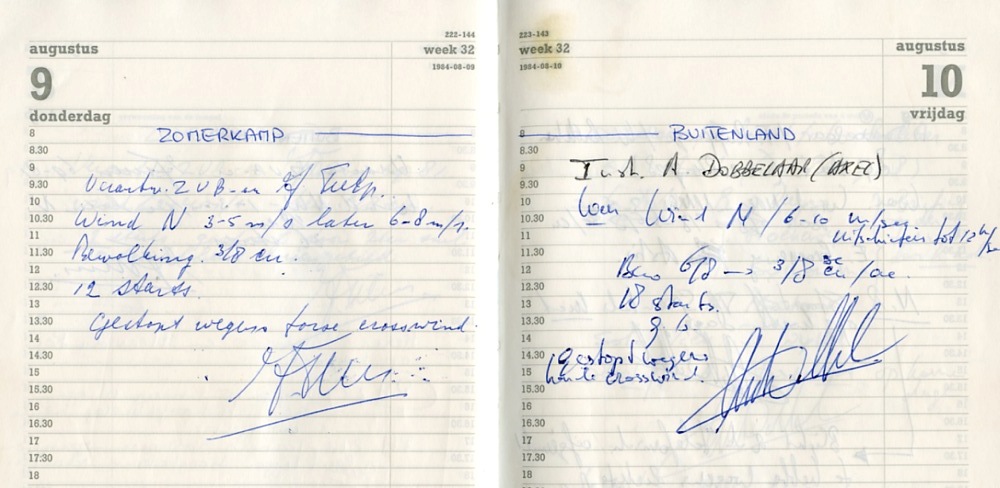 222-144
augustus
week 32
9
1984-08-09
donderdag
8 ZOMERKAMP
8.30
9
9.30
10
10.30 Wind N 3-5 m/s later 6-8 m/s.
11
11.30 Bewolking. 3/8 cu.
12
12.30 12 starts.
13
13.30 Gestopt wegens forse crosswind.
14
14.30
15
15.30
16
16.30
17
17.30
18
223-143
week 32
augustus
1984-08-10
10
vrijdag
8 BUITENLAND
8.30
9 Inst. A. DOBBELAAR (AXEL)
9.30
10
10.30 Wind N / 6-10 m/sec
11 uitschieters tot 12 m/sec
11.30
12 Bew 6/8 → 3/8 cu/ac.
12.30
13 18 starts.
13.30
14
14.30 Gestopt wegens
15 harde crosswind.
15.30
16
16.30
17
17.30
18